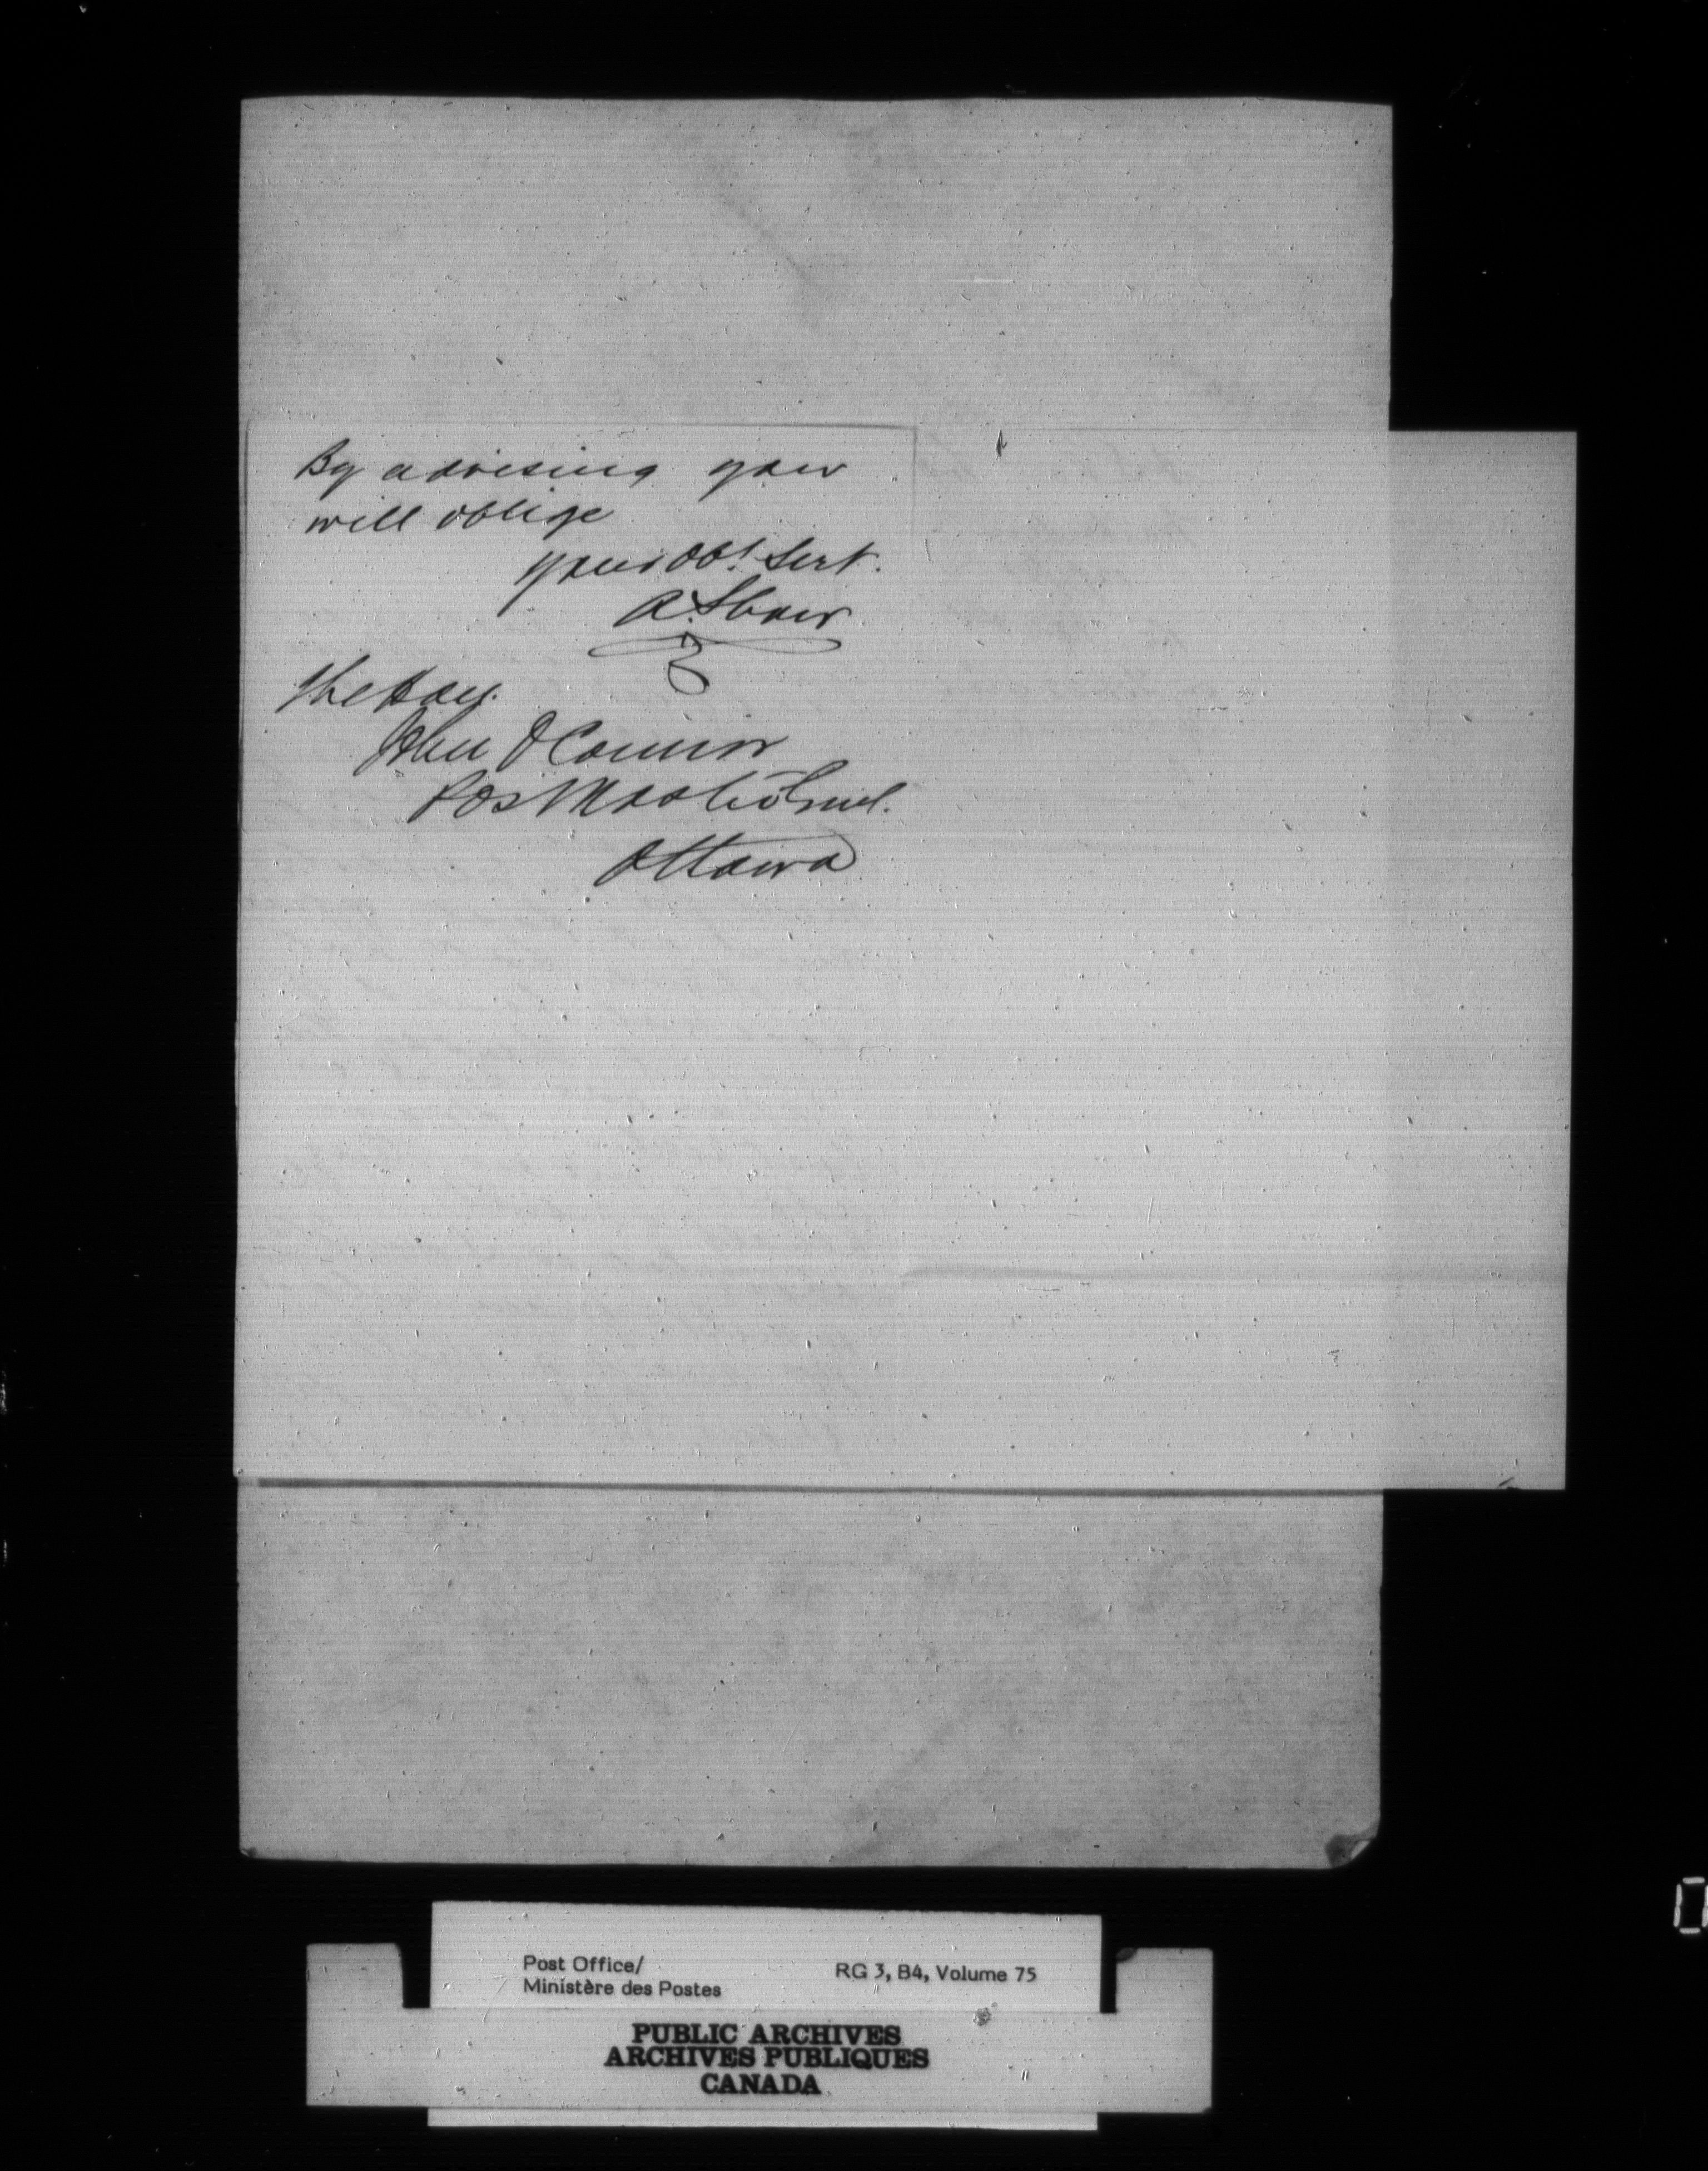 By advising your
will oblige
your Obt. Sert.
A. Shaw
The Hon.
John O'Connor
Pos Master Genl.
Ottawa
Post Office/
Ministère des Postes
RG 3, B4, Volume 75
PUBLIC ARCHIVES
ARCHIVES PUBLIQUES
CANADA